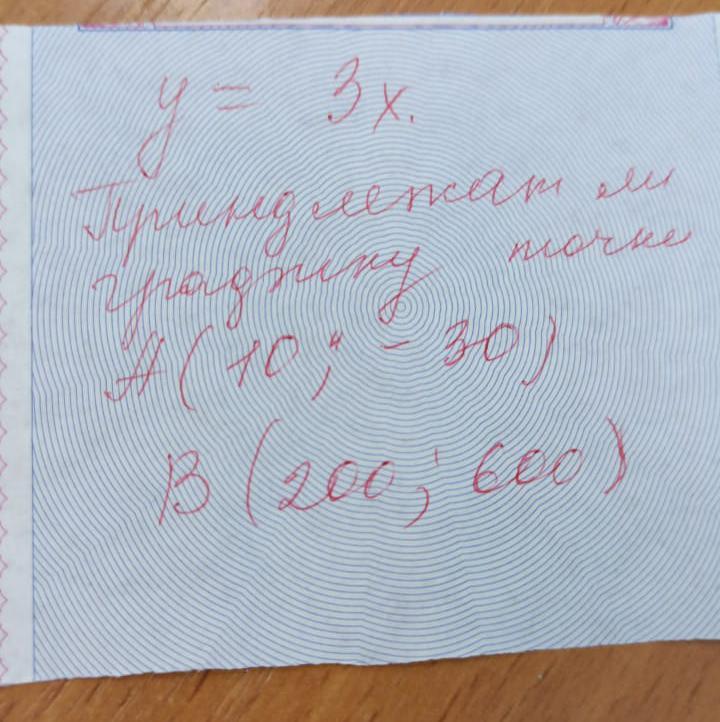 y = 3x.
Принадлежат ли
графику точки
A(10; -30)
B(200; 600)